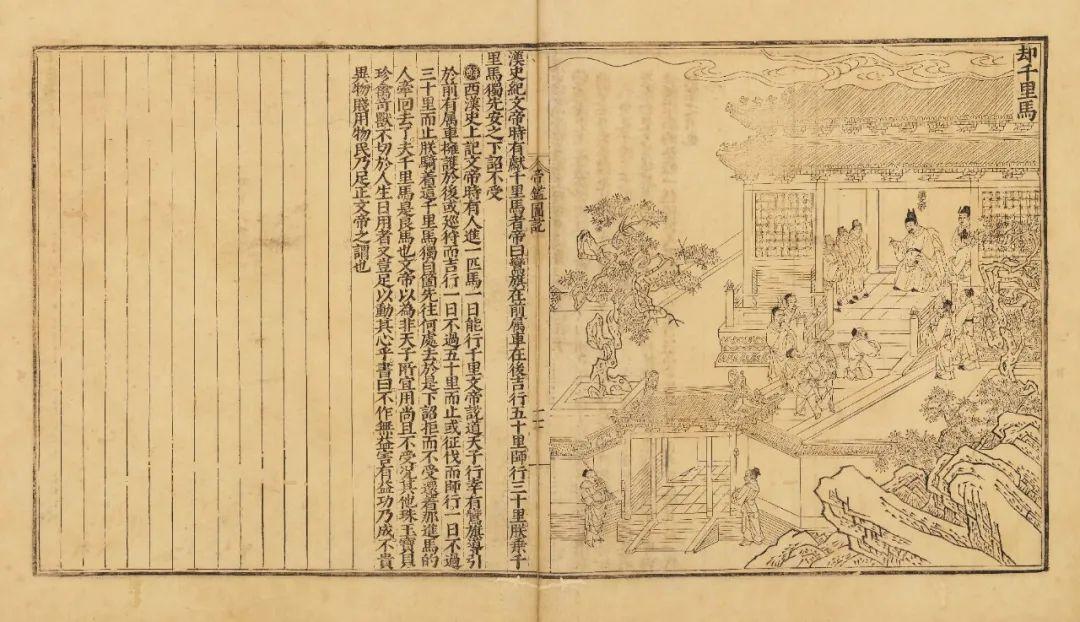 却千里馬
文帝
帝鑑圖說
漢史紀文帝時有獻千里馬者帝曰鸞旗在前屬車在後吉行五十里師行三十里朕乘千
里馬獨先安之下詔不受
西漢史上記文帝時有人進一匹馬一日能行千里文帝說道天子行幸有鸞旗導引
於前有屬車擁護於後或廵狩而吉行一日不過五十里而止或征伐而師行一日不過
三十里而止朕騎着這千里馬獨自箇先往何處去於是下詔拒而不受還着那進馬的
人牽回去了夫千里馬是良馬也文帝以為非天子所宜用尚且不受況其他珠玉寶貝
珍禽奇獸不切於人生日用者又豈足以動其心乎書曰不作無益害有益功乃成不貴
異物賤用物民乃足正文帝之謂也